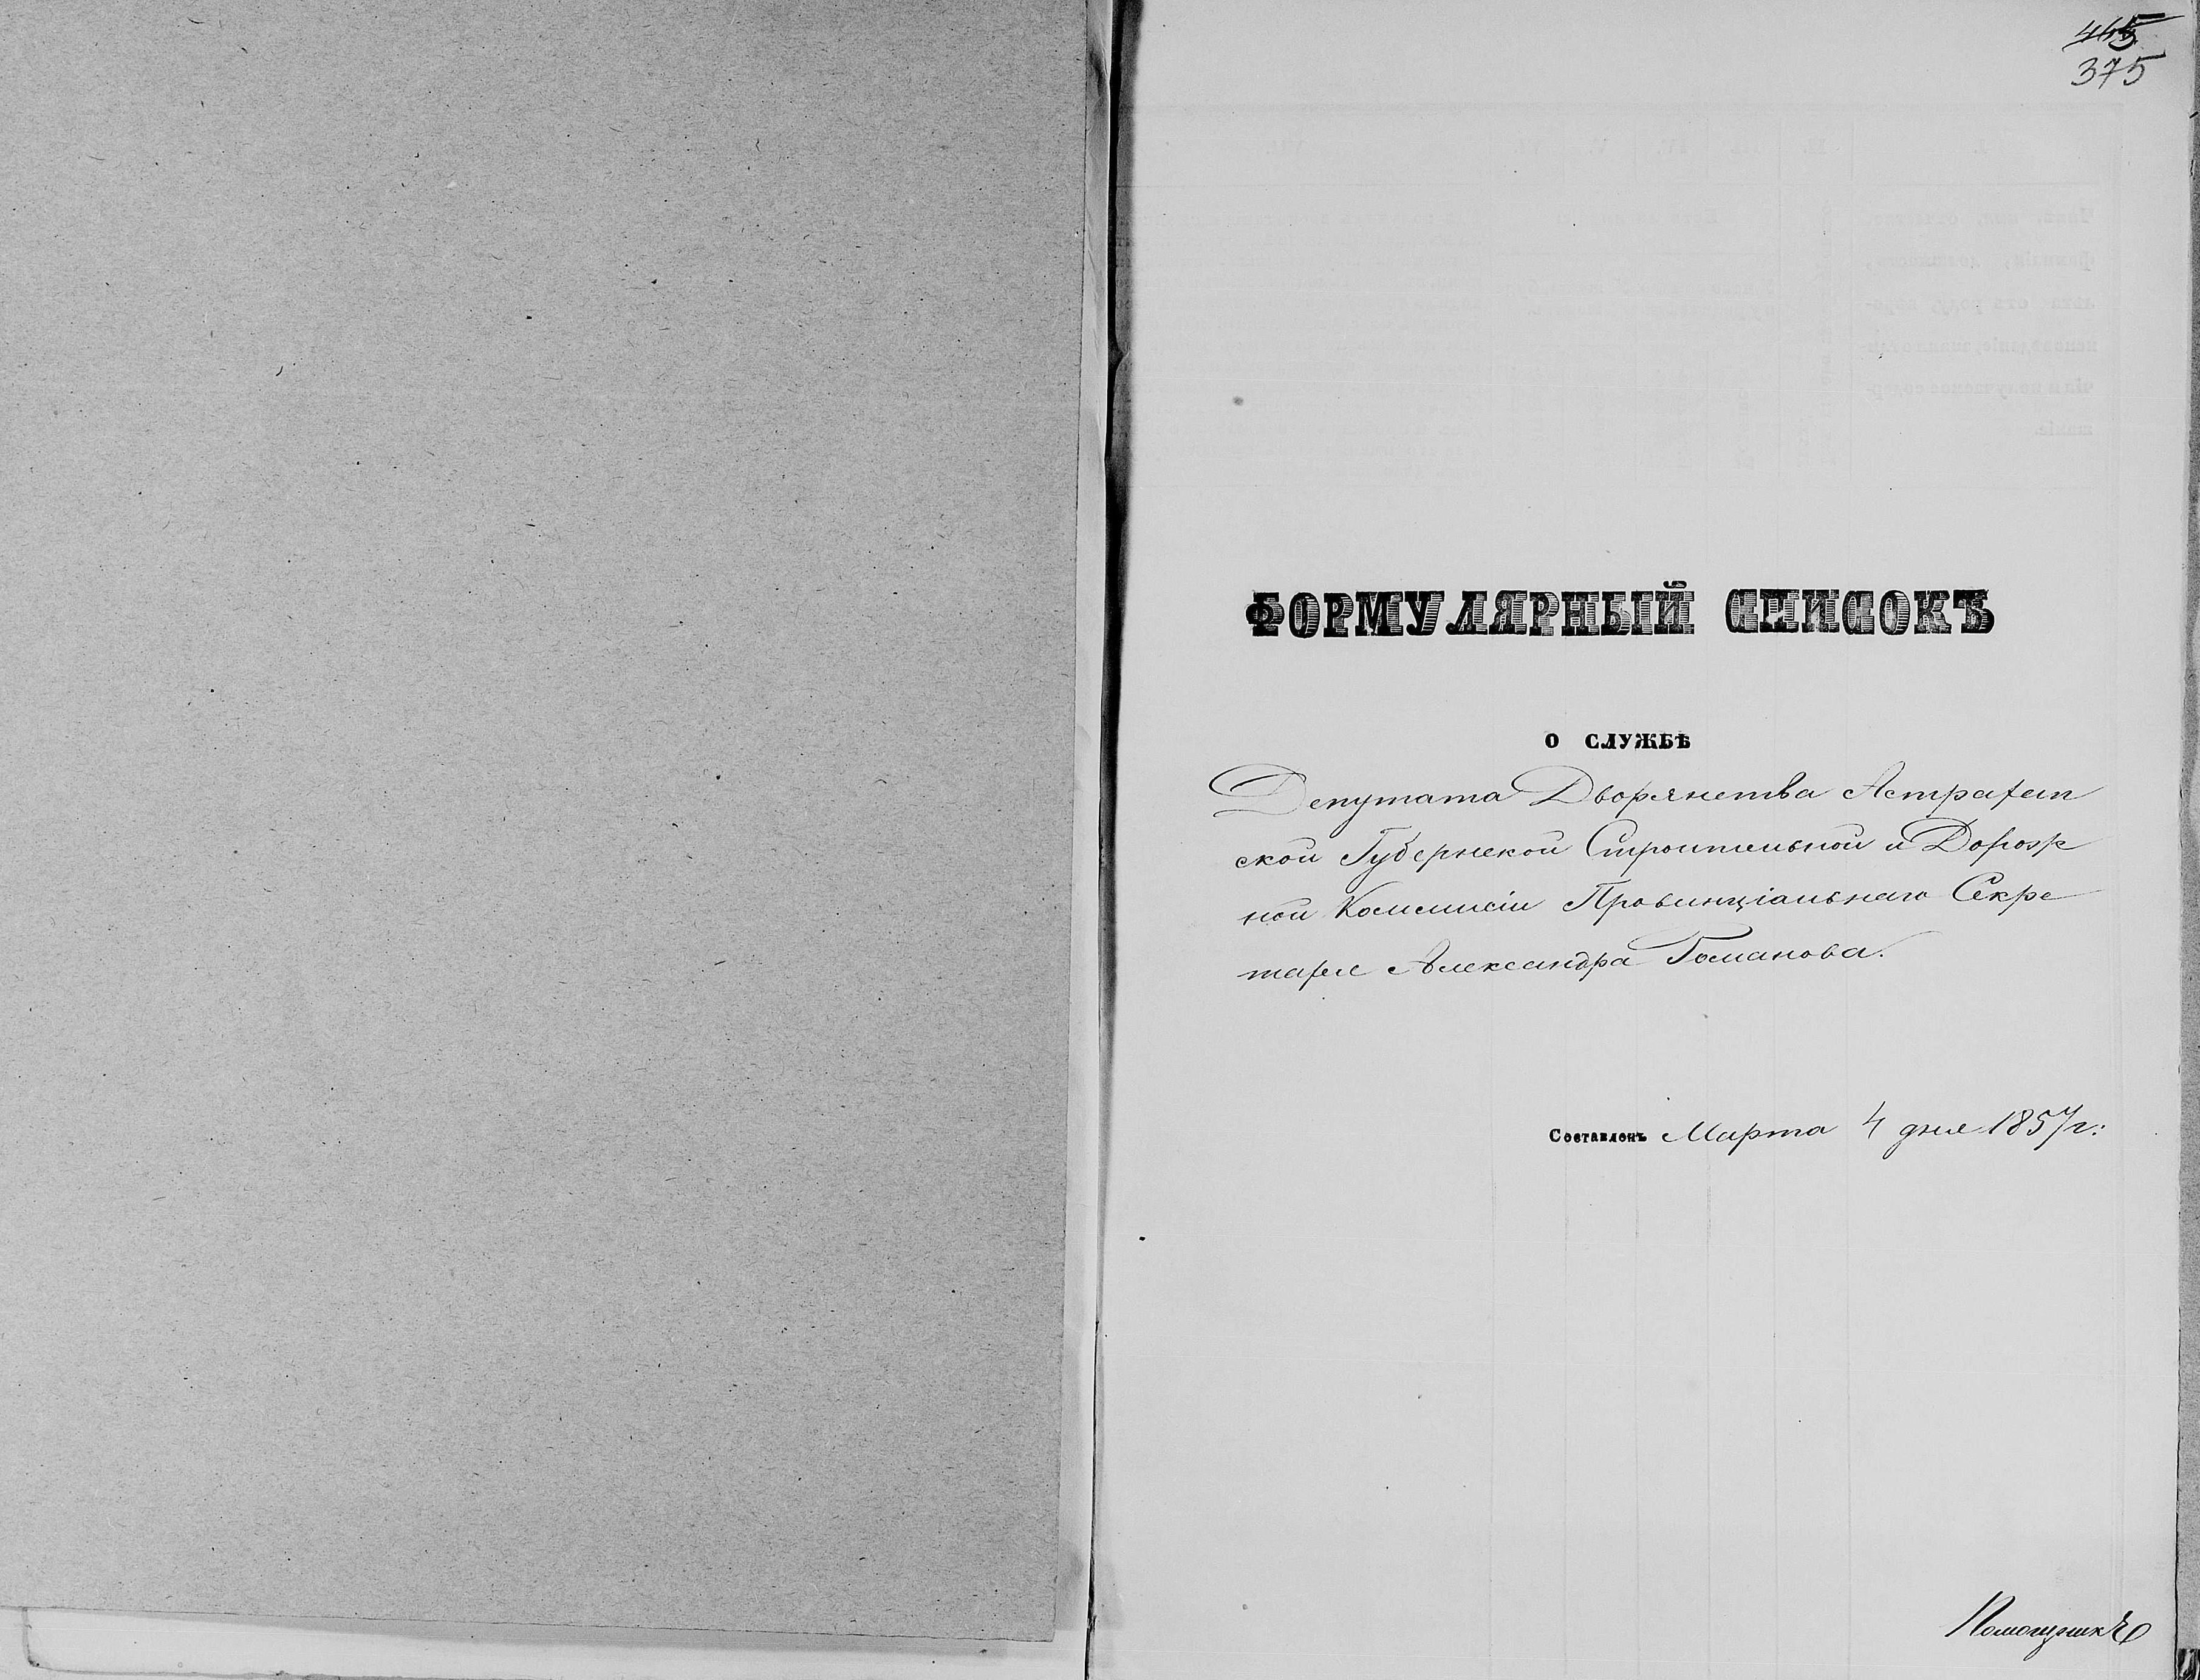 445
375
ФОРМУЛЯРНЫЙ СПИСОКЪ
О СЛУЖБѢ
Депутата Дворянства Астрахан
ской Губернской Строительной и Дорож
ной Коммисіи Провинціальнаго Секре
таря Александра Томанова.
Составленъ Марта 4 дня 1857 г:
Помощникъ